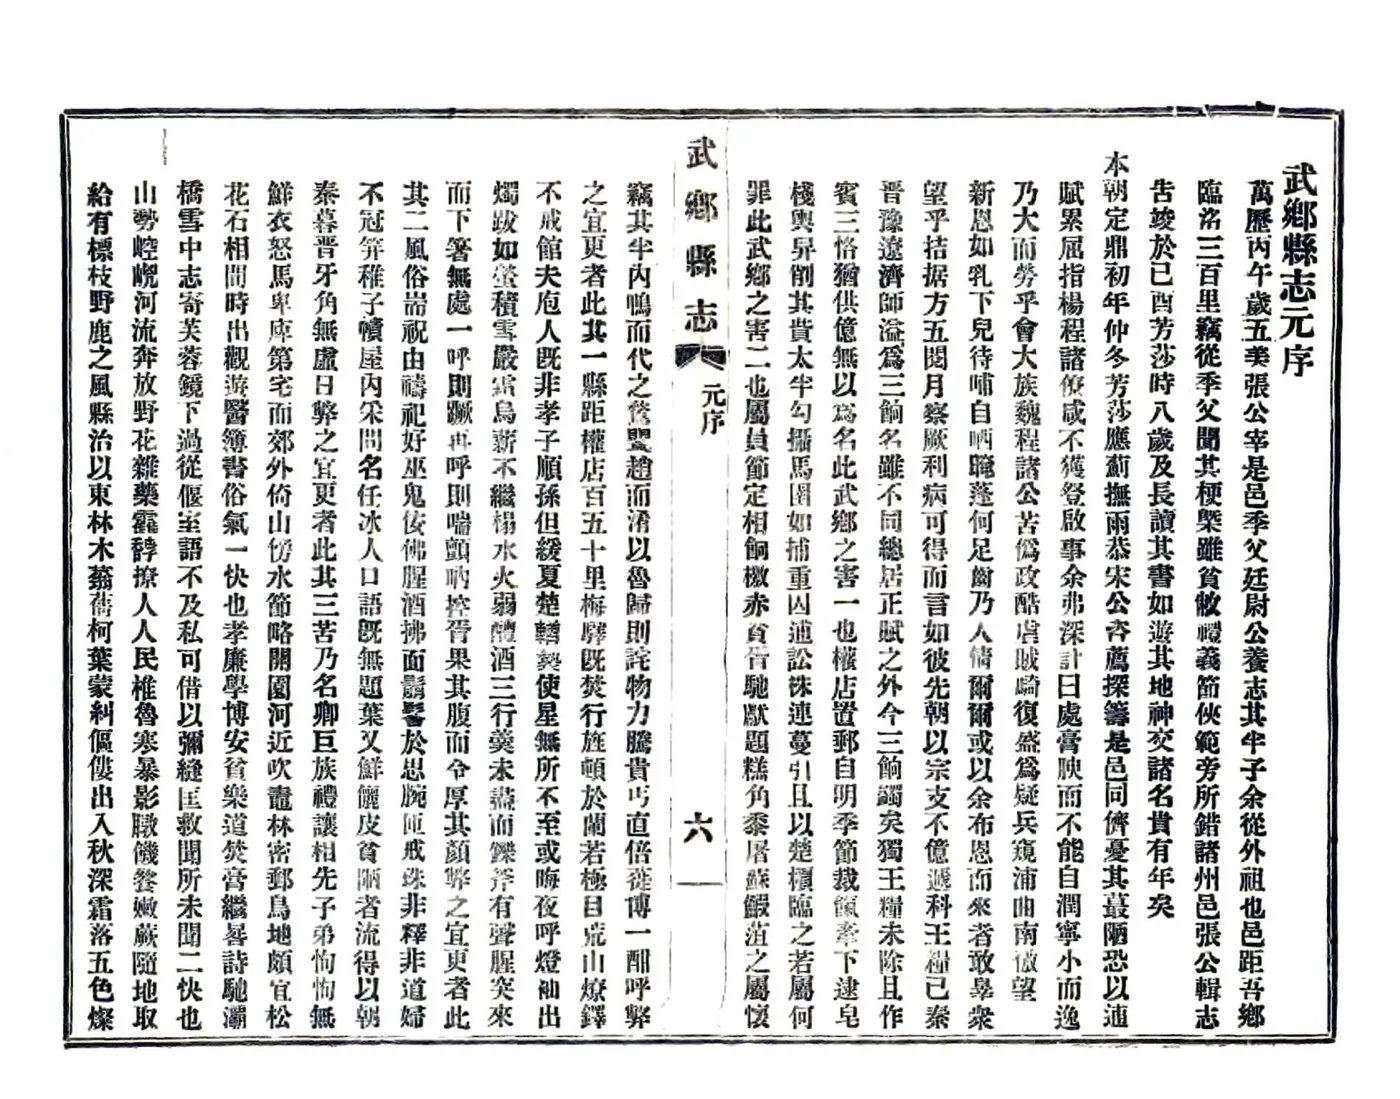 武鄉縣志元序
萬歷丙午歲五美張公宰是邑季父廷尉公養志其半子余從外祖也邑距吾鄉
臨洺三百里竊從季父聞其梗槩雖貧敝禮義節俠範旁所錯諸州邑張公輯志
告竣於己酉芳莎時八歲及長讀其書如遊其地神交諸名貴有年矣
本朝定鼎初年仲冬芳莎應薊撫雨恭宋公咨薦探籌是邑同儕憂其蕞陋恐以逋
賦累屈指楊程諸僚咸不獲登啟事余弗深計曰處膏腴而不能自潤寧小而逸
乃大而勞乎會大族魏程諸公苦僞政酷虐賊崎復盛爲疑兵窺浦曲南徼望
新恩如乳下兒待哺自哂腌蓬何足齒乃人倚爾爾或以余布恩而來者敢辠衆
望乎拮据方五閱月察厥利病可得而言如彼先朝以宗支不億遞科王糧已秦
晉豫遼濟師溢爲三餉名雖不同總居正賦之外今三餉蠲矣獨王糧未除且作
賓三恪猶供億無以爲名此武鄉之害一也權店置郵自明季節裁頷牽下逮皂
棧輿舁削其費太半勾攝馬圉如捕重囚逋訟株連蔓引且以楚檟臨之若屬何
罪此武鄉之害二也屬員節定相餉檄赤貧告馳獻題糕角黍屠蘇餳菹之屬懷
武鄉縣志
元序
六
竊其半內鳴而代之驚颶趙而淆以魯歸則詫物力騰貴丐直倍蓰博一酣呼弊
之宜更者此其一縣距權店百五十里梅驛既焚行旌頓於蘭若極目荒山燎鐸
不戒館夫庖人既非孝子順孫但緩夏楚轉奠使星無所不至或晦夜呼燈袖出
燭跋如螢積雪嚴霜烏薪不繼榻水火弱醴酒三行羹未薦而鑠斧有聲腥突來
而下箸無處一呼則蹶再呼則喘顫吶捽胥果其腹而令厚其顏弊之宜更者此
其二風俗耑祝由禱祀好巫鬼佞佛腥酒拂面鬍髻於思腕匝戒珠非釋非道婦
不冠笄稚子幘屋內宋問名任冰人口語既無題葉又鮮儷皮貧陋者流得以朝
秦暮晉牙角無虛日弊之宜更者此其三苦乃名卿巨族禮讓相先子弟恂恂無
鮮衣怒馬卑庳第宅而郊外倚山傍水節略開園河近吹鼃林密郵鳥地頗宜松
花石相間時出觀游醫簿書俗氣一快也孝廉學博安貧樂道焚膏繼晷詩馳灞
橋雪中志寄芙蓉鏡下過從偃室語不及私可借以彌縫匡救聞所未聞二快也
山勢崆峴河流奔放野花雜藥靄靜撩人人民椎魯寒暴影臌饑餐嫩蕨隨地取
給有標枝野鹿之風縣治以東林木蓊蒨柯葉蒙糾傴僂出入秋深霜落五色燦